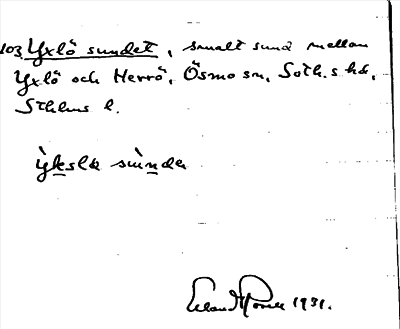 103 Yxlö sundet, smalt sund mellan
Yxlö och Herrö, Ösmo sn, Soth.s hd,
Sthlms l.
ỳksle sùnde
Erland Rosell 1931.